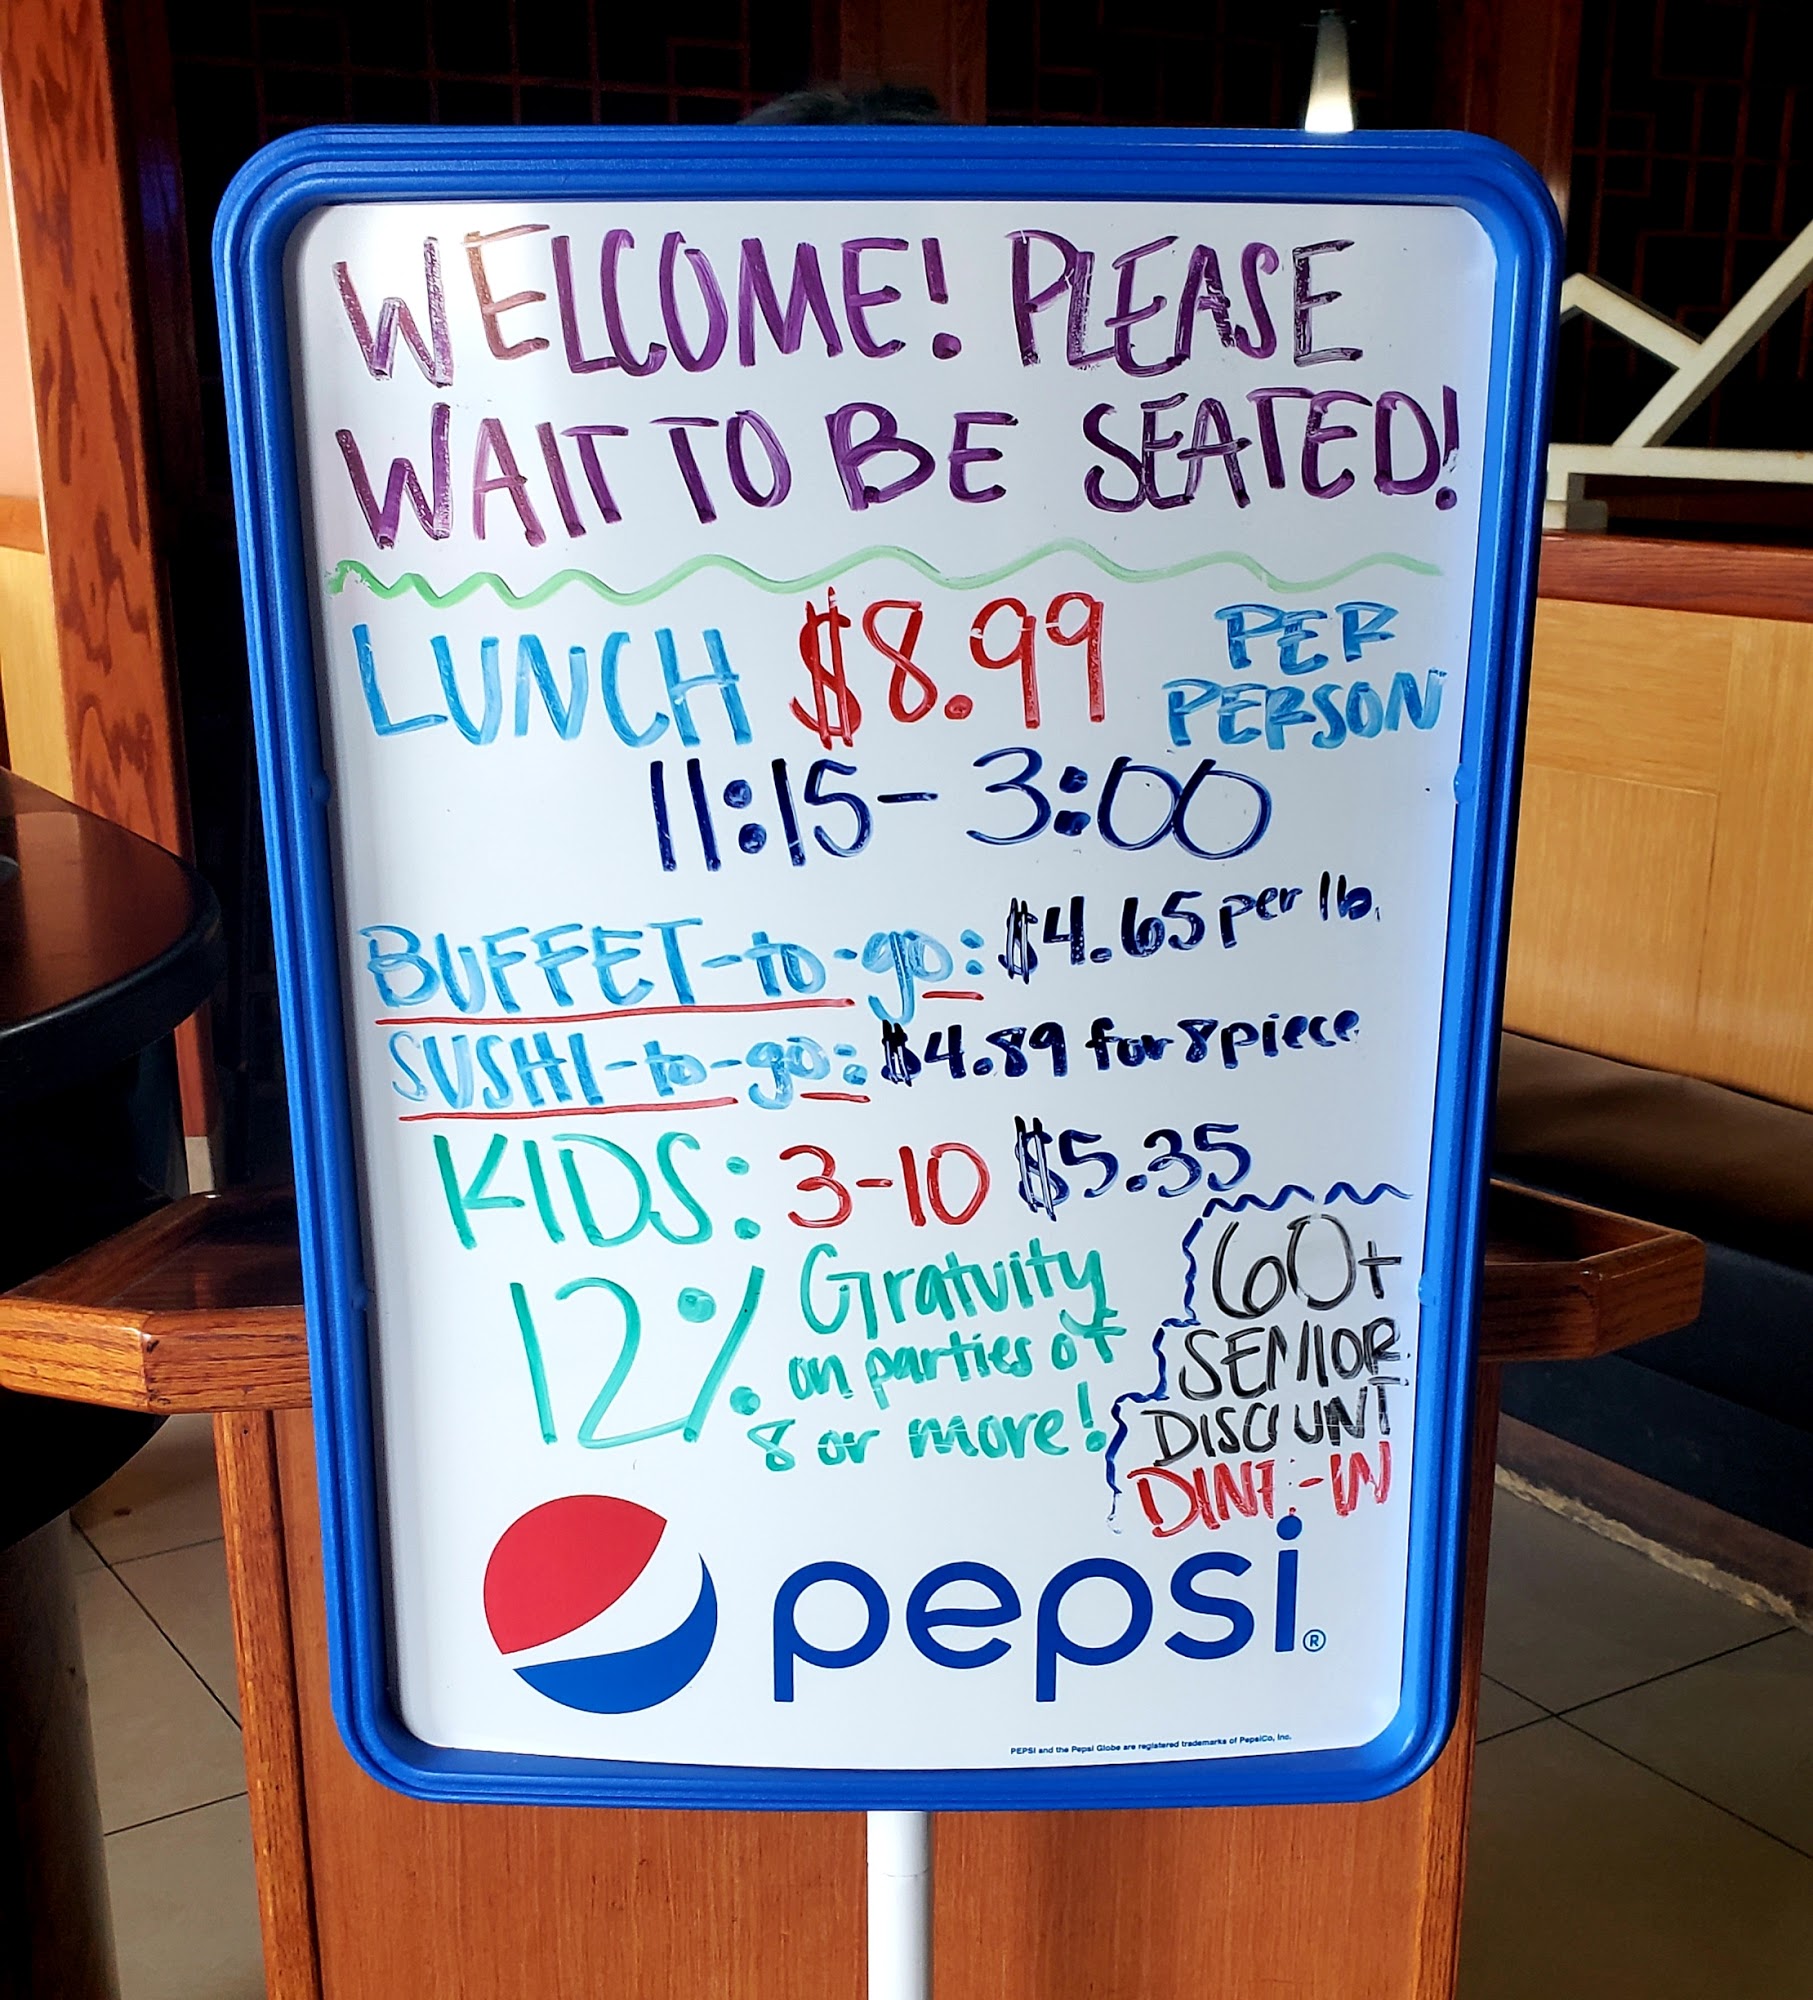 WELCOME! PLEASE
WAIT TO BE SEATED!
LUNCH $8.99 PER PERSON
11:15-3:00
BUFFET-to-go: $4.65 per lb.
SUSHI-to-go: $4.89 for 8 piece
KIDS: 3-10 $5.35
12% Gratuity
on parties of
8 or more!
60+
SENIOR
DISCOUNT
DINE-IN
pepsi®
PEPSI and the Pepsi Globe are registered trademarks of PepsiCo, Inc.